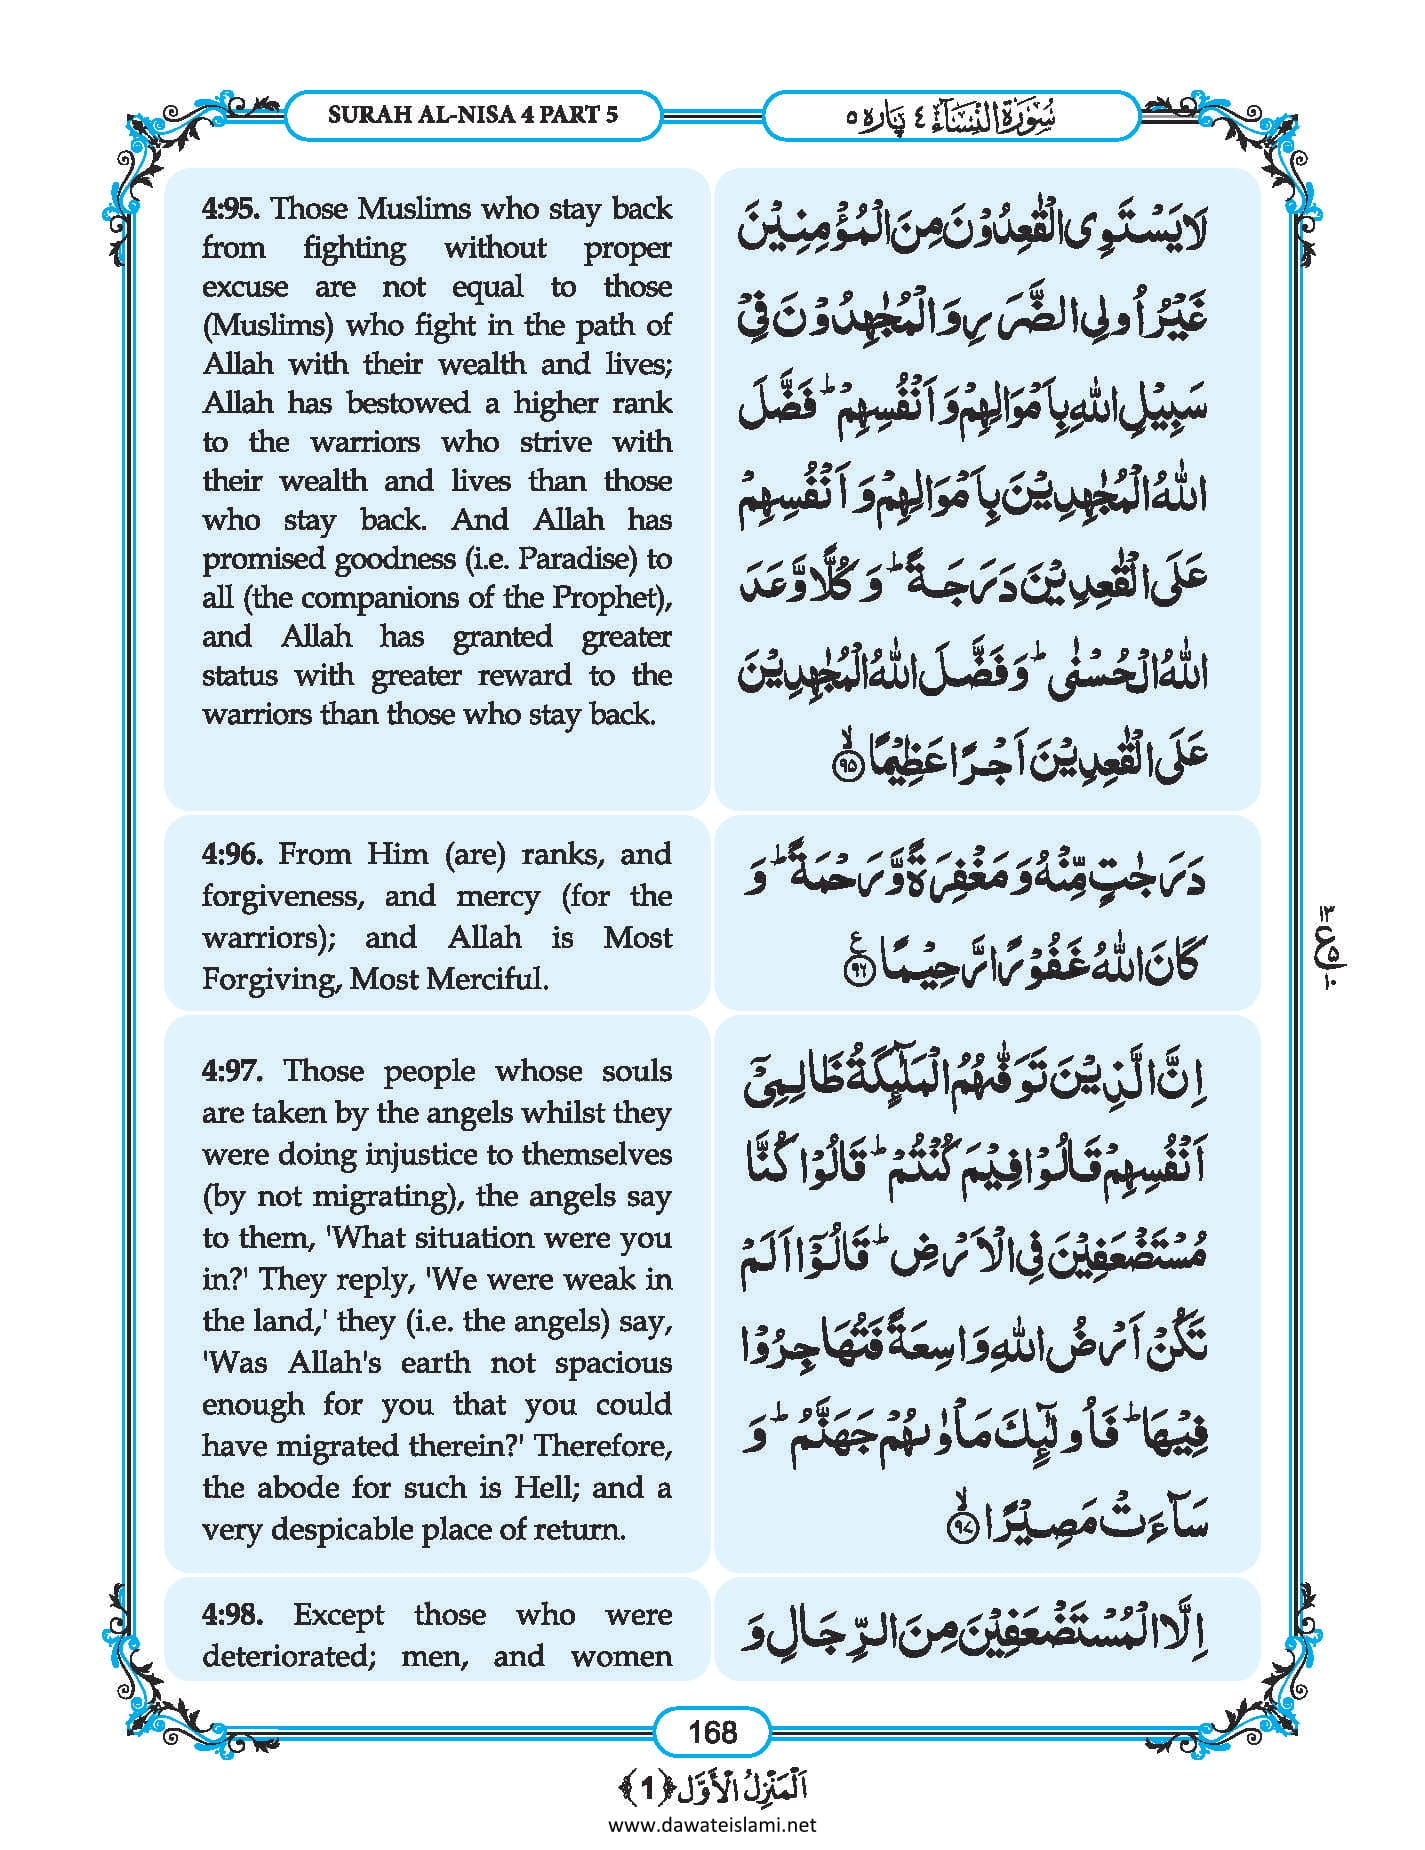 SURAH AL-NISA 4 PART 5
سُوْرَةُ النِّسَآء ٤ پَارہ ٥
4:95. Those Muslims who stay back
from fighting without proper
excuse are not equal to those
(Muslims) who fight in the path of
Allah with their wealth and lives;
Allah has bestowed a higher rank
to the warriors who strive with
their wealth and lives than those
who stay back. And Allah has
promised goodness (i.e. Paradise) to
all (the companions of the Prophet),
and Allah has granted greater
status with greater reward to the
warriors than those who stay back.
لَا یَسْتَوِی الْقٰعِدُوْنَ مِنَ الْمُؤْمِنِیْنَ
غَیْرُ اُولِی الضَّرَرِ وَ الْمُجٰهِدُوْنَ فِیْ
سَبِیْلِ اللّٰهِ بِاَمْوَالِهِمْ وَ اَنْفُسِهِمْ ؕ فَضَّلَ
اللّٰهُ الْمُجٰهِدِیْنَ بِاَمْوَالِهِمْ وَ اَنْفُسِهِمْ
عَلَی الْقٰعِدِیْنَ دَرَجَةً ؕ وَ كُلًّا وَّعَدَ
اللّٰهُ الْحُسْنٰی ؕ وَ فَضَّلَ اللّٰهُ الْمُجٰهِدِیْنَ
عَلَی الْقٰعِدِیْنَ اَجْرًا عَظِیْمًا ۙ﴿۹۵﴾
4:96. From Him (are) ranks, and
forgiveness, and mercy (for the
warriors); and Allah is Most
Forgiving, Most Merciful.
دَرَجٰتٍ مِّنْهُ وَ مَغْفِرَةً وَّ رَحْمَةً ؕ وَ
كَانَ اللّٰهُ غَفُوْرًا رَّحِیْمًا ﴿۹۶﴾ ع
١٣
ع ٥
١٠
4:97. Those people whose souls
are taken by the angels whilst they
were doing injustice to themselves
(by not migrating), the angels say
to them, 'What situation were you
in?' They reply, 'We were weak in
the land,' they (i.e. the angels) say,
'Was Allah's earth not spacious
enough for you that you could
have migrated therein?' Therefore,
the abode for such is Hell; and a
very despicable place of return.
اِنَّ الَّذِیْنَ تَوَفّٰىهُمُ الْمَلٰٓىِٕكَةُ ظَالِمِیْۤ
اَنْفُسِهِمْ قَالُوْا فِیْمَ كُنْتُمْ ؕ قَالُوْا كُنَّا
مُسْتَضْعَفِیْنَ فِی الْاَرْضِ ؕ قَالُوْۤا اَلَمْ
تَكُنْ اَرْضُ اللّٰهِ وَاسِعَةً فَتُهَاجِرُوْا
فِیْهَا ؕ فَاُولٰٓىِٕكَ مَاْوٰىهُمْ جَهَنَّمُ ؕ وَ
سَآءَتْ مَصِیْرًا ۙ﴿۹۷﴾
4:98. Except those who were
deteriorated; men, and women
اِلَّا الْمُسْتَضْعَفِیْنَ مِنَ الرِّجَالِ وَ
168
اَلْمَنْزِلُ الْأَوَّل ﴿1﴾
www.dawateislami.net